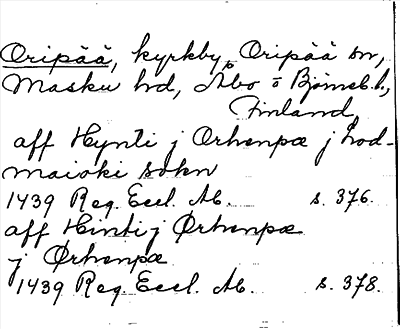 Oripää, kyrkby, Oripää sn,
Masku hd, Åbo o Björneb. l.,
Finland
aff Hynti j Orhenpæ j Lod-
maioki sokn
1439 Reg. Eccl. Ab. s. 376.
aff Hinti j Ørhenpæ
j Ørhenpæ
1439 Reg. Eccl. Ab. s. 378.